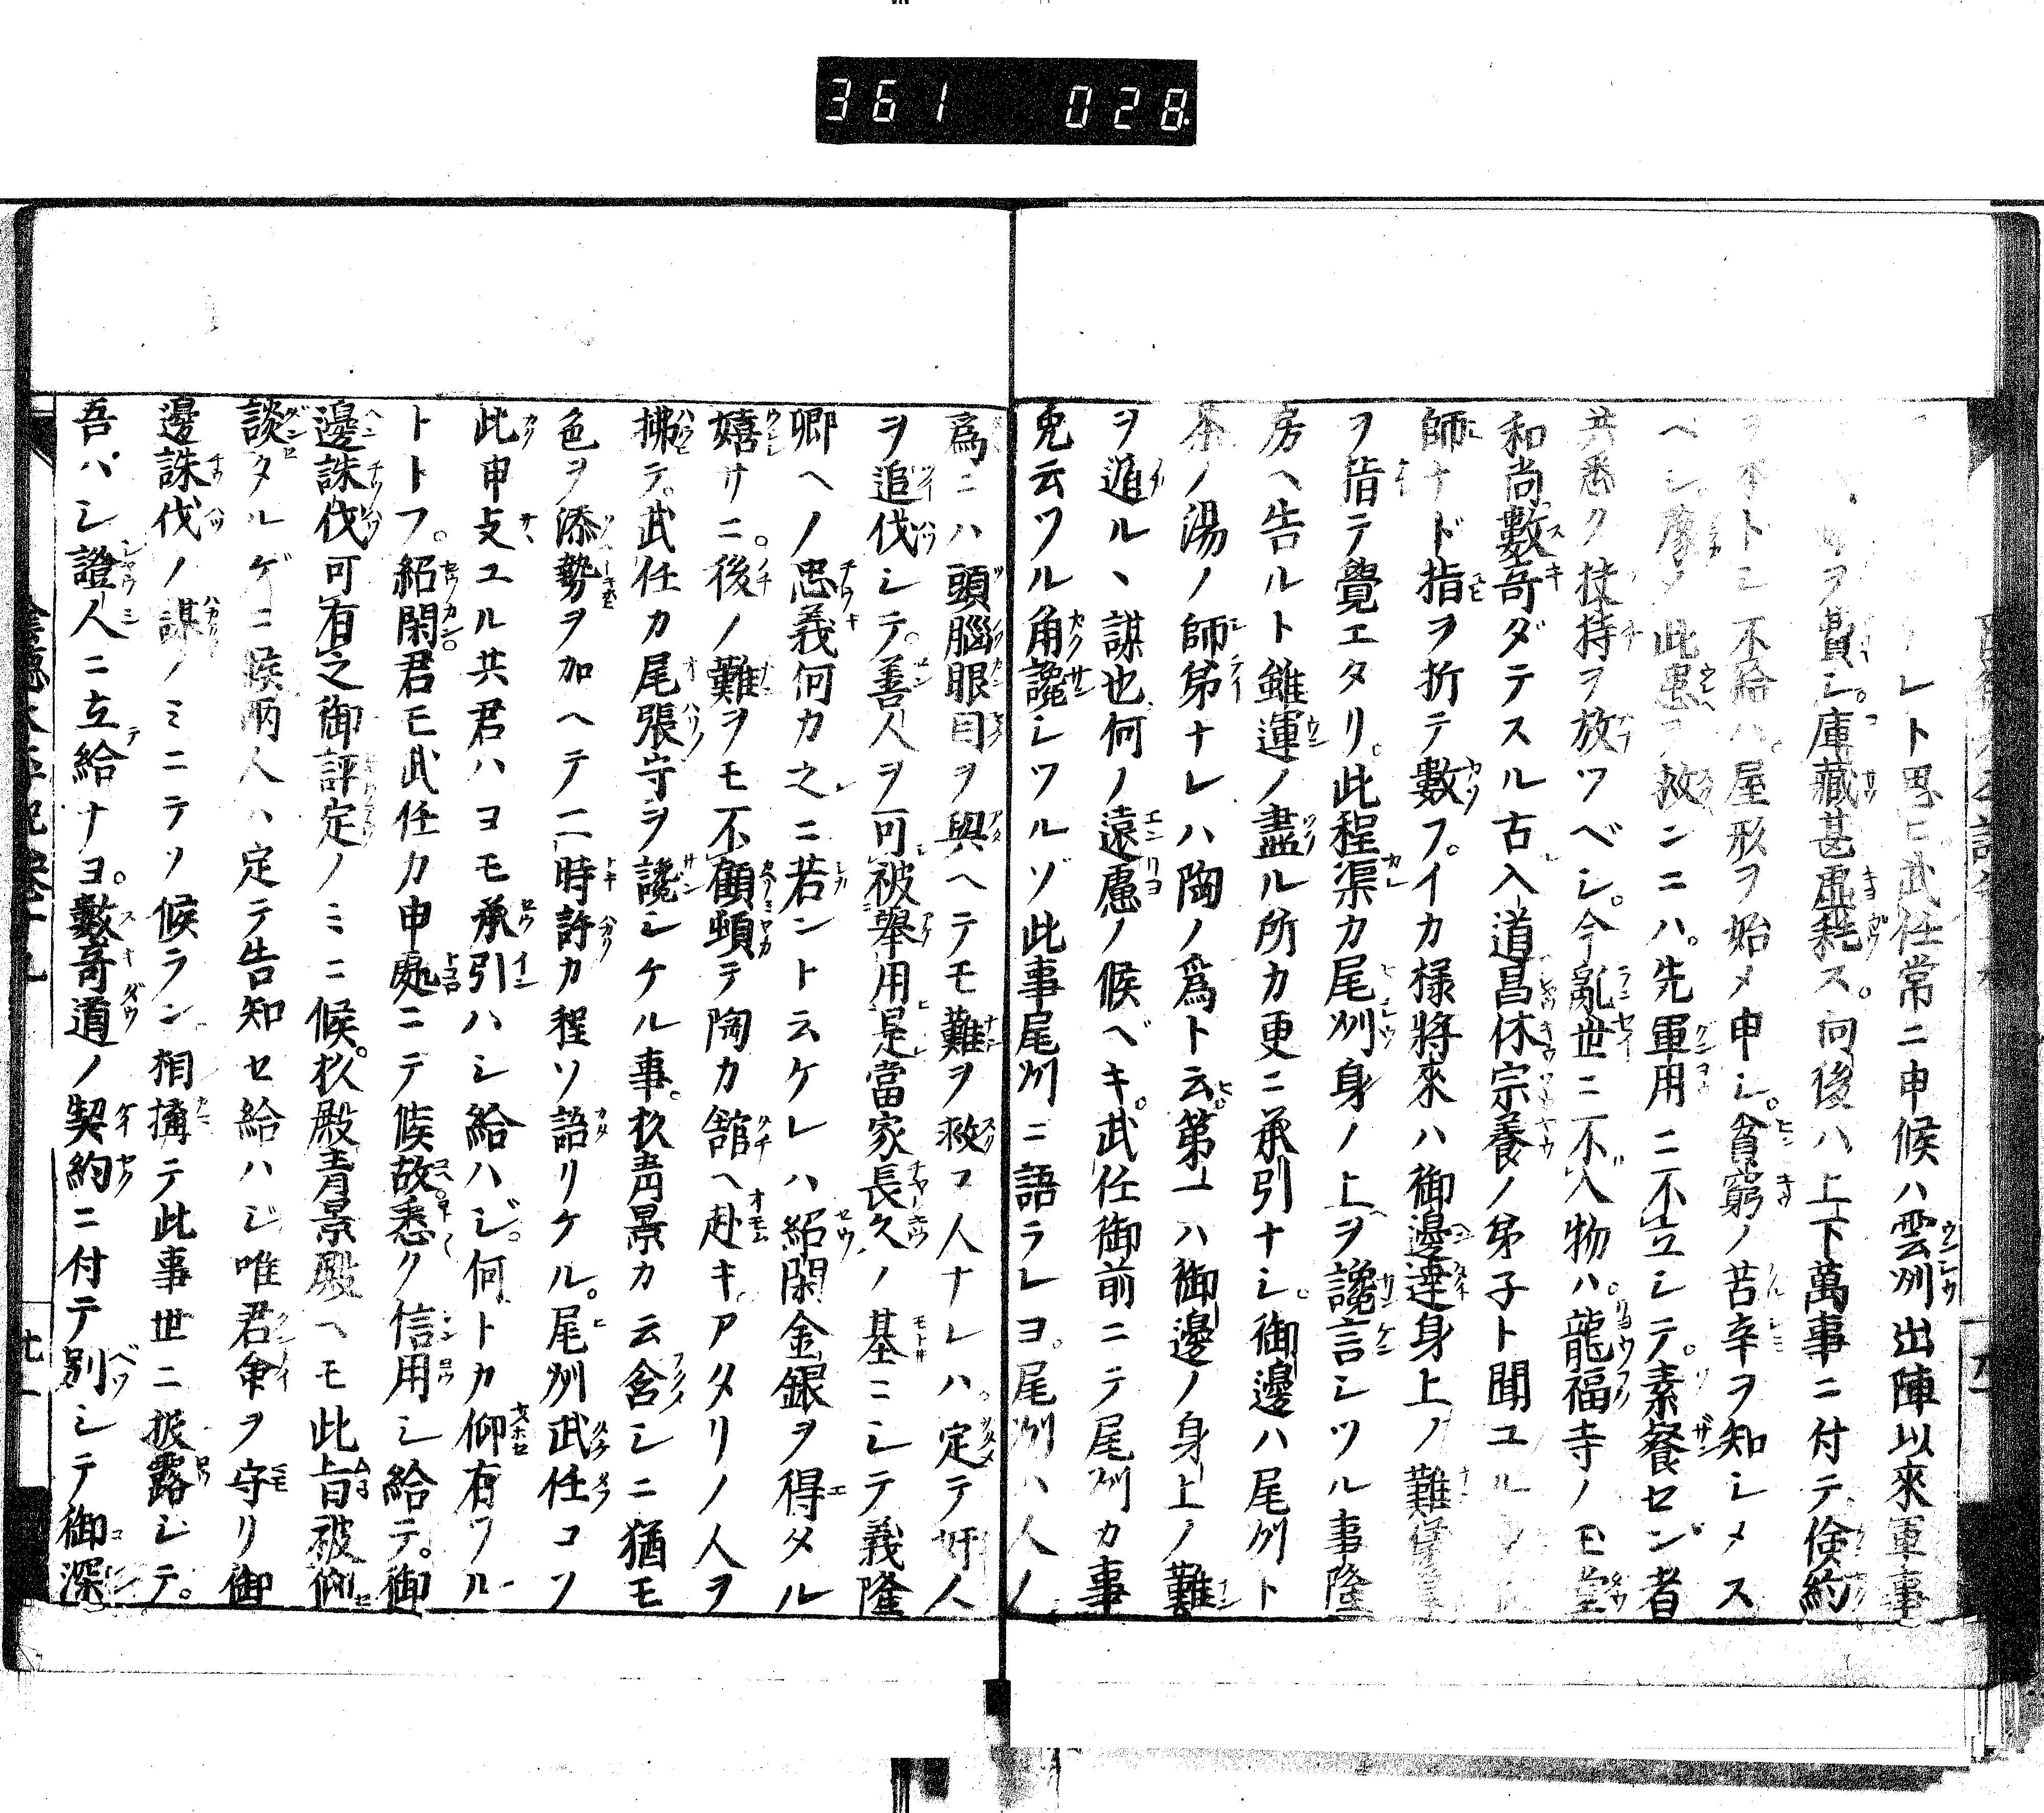 361 028
レト思ヒ武任常ニ申候ハ雲州出陣以來軍事
ヲ費シ。庫藏甚虚耗ス。向後ハ上下萬事ニ付テ。倹約
ヲ不トシ不給ハ。屋形ヲ始メ申シ。貧窮ノ苦辛ヲ知シメス
ヘシ。此患ヲ救ンニハ。先軍用ニ不立シテ。素餐セン者
共悉ク扶持ヲ放ツベシ。今亂世ニ不入物ハ。龍福寺ノモ堂
和尚數奇ダテスル古入道昌休宗養ノ弟子ト聞ユル
師ナド指ヲ折テ數フ。イカ様將來ハ御邊達身上ノ難
ヲ皆テ覺エタリ。此程渠カ尾州身ノ上ヲ讒言シツル事隆
房ヘ告ルト雖運ノ盡ル所カ更ニ承引ナシ。御邊ハ尾州ト
茶ノ湯ノ師弟ナレハ陶ノ爲ト云。第一ハ御邊ノ身上ノ難
ヲ遁ルヽ謀也何ノ遠慮ノ候ベキ。武任御前ニテ尾州カ事
兎云ツル角讒シツルゾ此事尾州ニ語ラレヨ。尾州ハ人ノ
爲ニハ頭腦眼目ヲ與ヘテモ難ヲ救フ人ナレハ定テ奸人
ヲ追伐シテ。善人ヲ可被擧用是當家長久ノ基ニシテ義隆
卿ヘノ忠義何カ之ニ若ント云ケレハ紹閑金銀ヲ得タル
嬉サニ。後ノ難ヲモ不顧頓テ陶カ舘ヘ赴キ。アタリノ人ヲ
拂テ。武任カ尾張守ヲ讒シケル事。杉青景カ云含シニ猶モ
色ヲ添勢ヲ加ヘテ二時許カ程ソ語リケル。尾州武任コソ
此申支ユル共君ハヨモ承引ハシ給ハジ。何トカ仰有ツル
トトフ。紹閑君モ武任カ申處ニテ候故悉ク信用シ給テ。御
邊誅伐可有之御評定ノミニ候。杉殿青景殿ヘモ此旨被仰
談タルゲニ候兩人ハ定テ告知セ給ハジ唯君命ヲ守リ御
邊誅伐ノ謀ノミニテソ候ラン。相搆テ此事世ニ披露シテ。
吾バシ證人ニ立給ナヨ。數奇道ノ契約ニ付テ別シテ御深